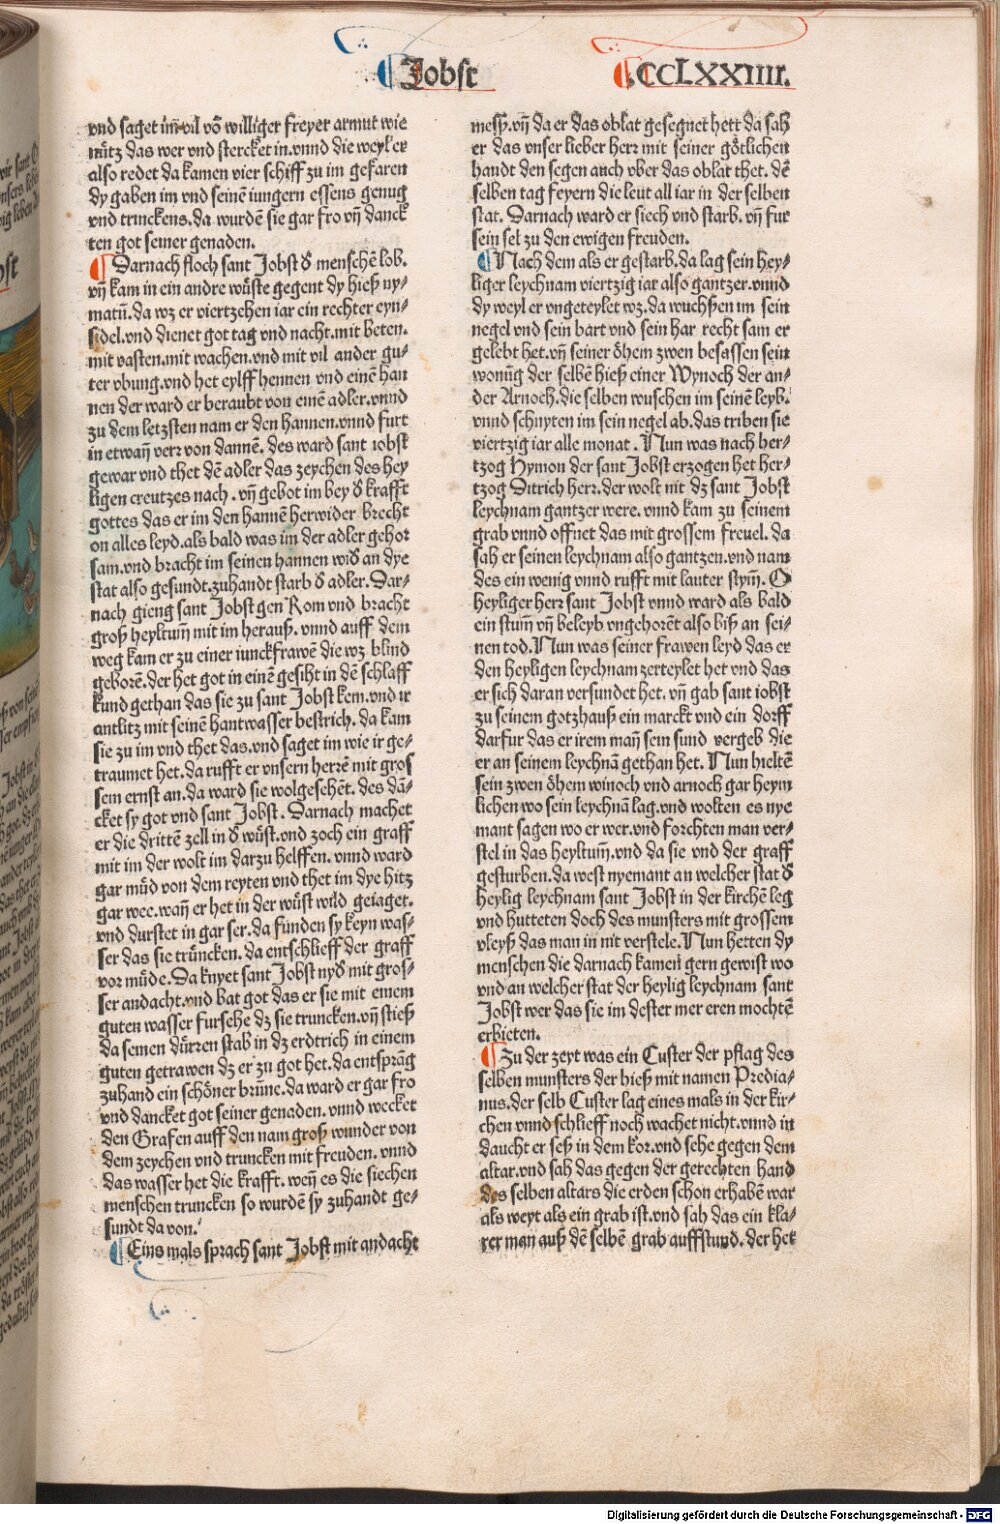 Jobst
CCLXXIIII.
vnd saget im vil võ williger freyer armut wie
nütz das wer vnd stercket in.vnnd die weyl er
also redet da kamen vier schiff zu im gefaren
dy gaben im vnd seinẽ iungern essens genug
vnd trinckens.da wurdẽ sie gar fro vñ danck
ten got seiner genaden.
Darnach floch sant Jobst d̕ menschẽ lob.
vñ kam in ein andre wüste gegent dy hieß ny-
matñ.da wz er viertzehen iar ein rechter eyn-
sidel.vnd dienet got tag vnd nacht.mit beten.
mit vasten.mit wachen.vnd mit vil ander gu-
ter vbung.vnd het eylff hennen vnd einẽ han
nen der ward er beraubt von einẽ adler.vnnd
zu dem letzsten nam er den hannen.vnnd furt
in etwañ verr von dannẽ. des ward sant iobst
gewar vnd thet dẽ adler das zeychen des hey
ligen creutzes nach . vñ gebot im bey d̕ krafft
gottes das er im den hannẽ herwider brecht
on alles leyd.als bald was im der adler gehor
sam.vnd bracht im seinen hannen wid̕ an dye
stat also gesundt.zuhandt starb d̕ adler. Dar-
nach gieng sant Jobst gen Rom vnd bracht
groß heyltum̃ mit im herauß. vnnd auff dem
weg kam er zu einer iunckfrawẽ die wz blind
geborẽ.der het got in einẽ gesiht in dẽ schlaff
kund gethan das sie zu sant Jobst kem.vnd ir
antlitz mit seinẽ hantwasser bestrich. da kam
sie zu im vnd thet das.vnd saget im wie ir ge-
traumet het.da rufft er vnsern herrẽ mit gros
sem ernst an.da ward sie wolgesehẽt. des dã-
cket sy got vnd sant Jobst . Darnach machet
er die drittẽ zell in d̕ wüst.vnd zoch ein graff
mit im der wolt im darzu helffen. vnnd ward
gar müd von dem reyten vnd thet im dye hitz
gar wee.wañ er het in der wüst wild geiaget.
vnd durstet in gar ser.da funden sy keyn was-
ser das sie trüncken. da entschlieff der graff
vor müde.Da knyet sant Jobst nyd̕ mit gros-
ser andacht.vnd bat got das er sie mit einem
guten wasser fursehe dz sie truncken.vñ stieß
da seinen dürren stab in dz erdtrich in einem
guten getrawen dz er zu got het.da entsprãg
zuhand ein schöner brũne.da ward er gar fro
vnd dancket got seiner genaden. vnnd wecket
den Grafen auff den nam groß wunder von
dem zeychen vnd truncken mit freuden. vnnd
das wasser het die krafft. weñ es die siechen
menschen truncken so wurdẽ sy zuhandt ge-
sundt da von.
Eins mals sprach sant Jobst mit andacht
mesß.vñ da er das oblat gesegnet hett da sah
er das vnser lieber herr mit seiner götlichen
handt den segen auch vber das oblat thet. dẽ
selben tag feyern die leut all iar in der selben
stat. Darnach ward er siech vnd starb. vñ fur
sein sel zu den ewigen freuden.
Nach dem als er gestarb.da lag sein hey-
liger leychnam viertzig iar also gantzer.vnnd
dy weyl er vngeteylet wz.da wuchßen im sein
negel vnd sein bart vnd sein har recht sam er
gelebt het.vñ seiner öhem zwen besassen sein
wonũg der selbẽ hieß einer Wynoch der an-
der Arnoch.die selben wuschen im seinẽ leyb.
vnnd schnyten im sein negel ab.das triben sie
viertzig iar alle monat . Nun was nach her-
tzog Hymon der sant Jobst erzogen het her-
tzog Ditrich herr.der wolt nit dz sant Jobst
leychnam gantzer were. vnnd kam zu seinem
grab vnnd offnet das mit grossem freuel. da
sah er seinen leychnam also gantzen.vnd nam
des ein wenig vnnd rufft mit lauter stym̃. O
heyliger herr sant Jobst vnnd ward als bald
ein stum̃ vñ beleyb vngehorẽt also biß an sei-
nen tod.Nun was seiner frawen leyd das er
den heyligen leychnam zerteylet het vnd das
er sich daran versundet het. vñ gab sant iobst
zu seinem gotzhauß ein marckt vnd ein dorff
darfur das er irem mañ sein sund vergeb die
er an seinem leychnã gethan het. Nun hieltẽ
sein zwen öhem winoch vnd arnoch gar heym
lichen wo sein leychnã lag.vnd wolten es nye
mant sagen wo er wer.vnd forchten man ver-
stel in das heyltum̃.vnd da sie vnd der graff
gesturben.da west nyemant an welcher stat d̕
heylig leychnam sant Jobst in der kirchẽ leg
vnd hutteten doch des munsters mit grossem
vleyß das man in nit verstele.Nun hetten dy
menschen die darnach kamen gern gewist wo
vnd an welcher stat der heylig leychnam sant
Jobst wer das sie im dester mer eren mochtẽ
erbieten.
Zu der zeyt was ein Custer der pflag des
selben munsters der hieß mit namen Predia-
nus.der selb Custer lag eines mals in der kir-
chen vnnd schlieff noch wachet nicht.vnnd in
daucht er seß in dem kor.vnd sehe gegen dem
altar.vnd sah das gegen der gerechten hand
des selben altars die erden schon erhabẽ war
als weyt als ein grab ist.vnd sah das ein kla-
rer man auß dẽ selbẽ grab auffstund. der het
Digitalisierung gefördert durch die Deutsche Forschungsgemeinschaft - DFG